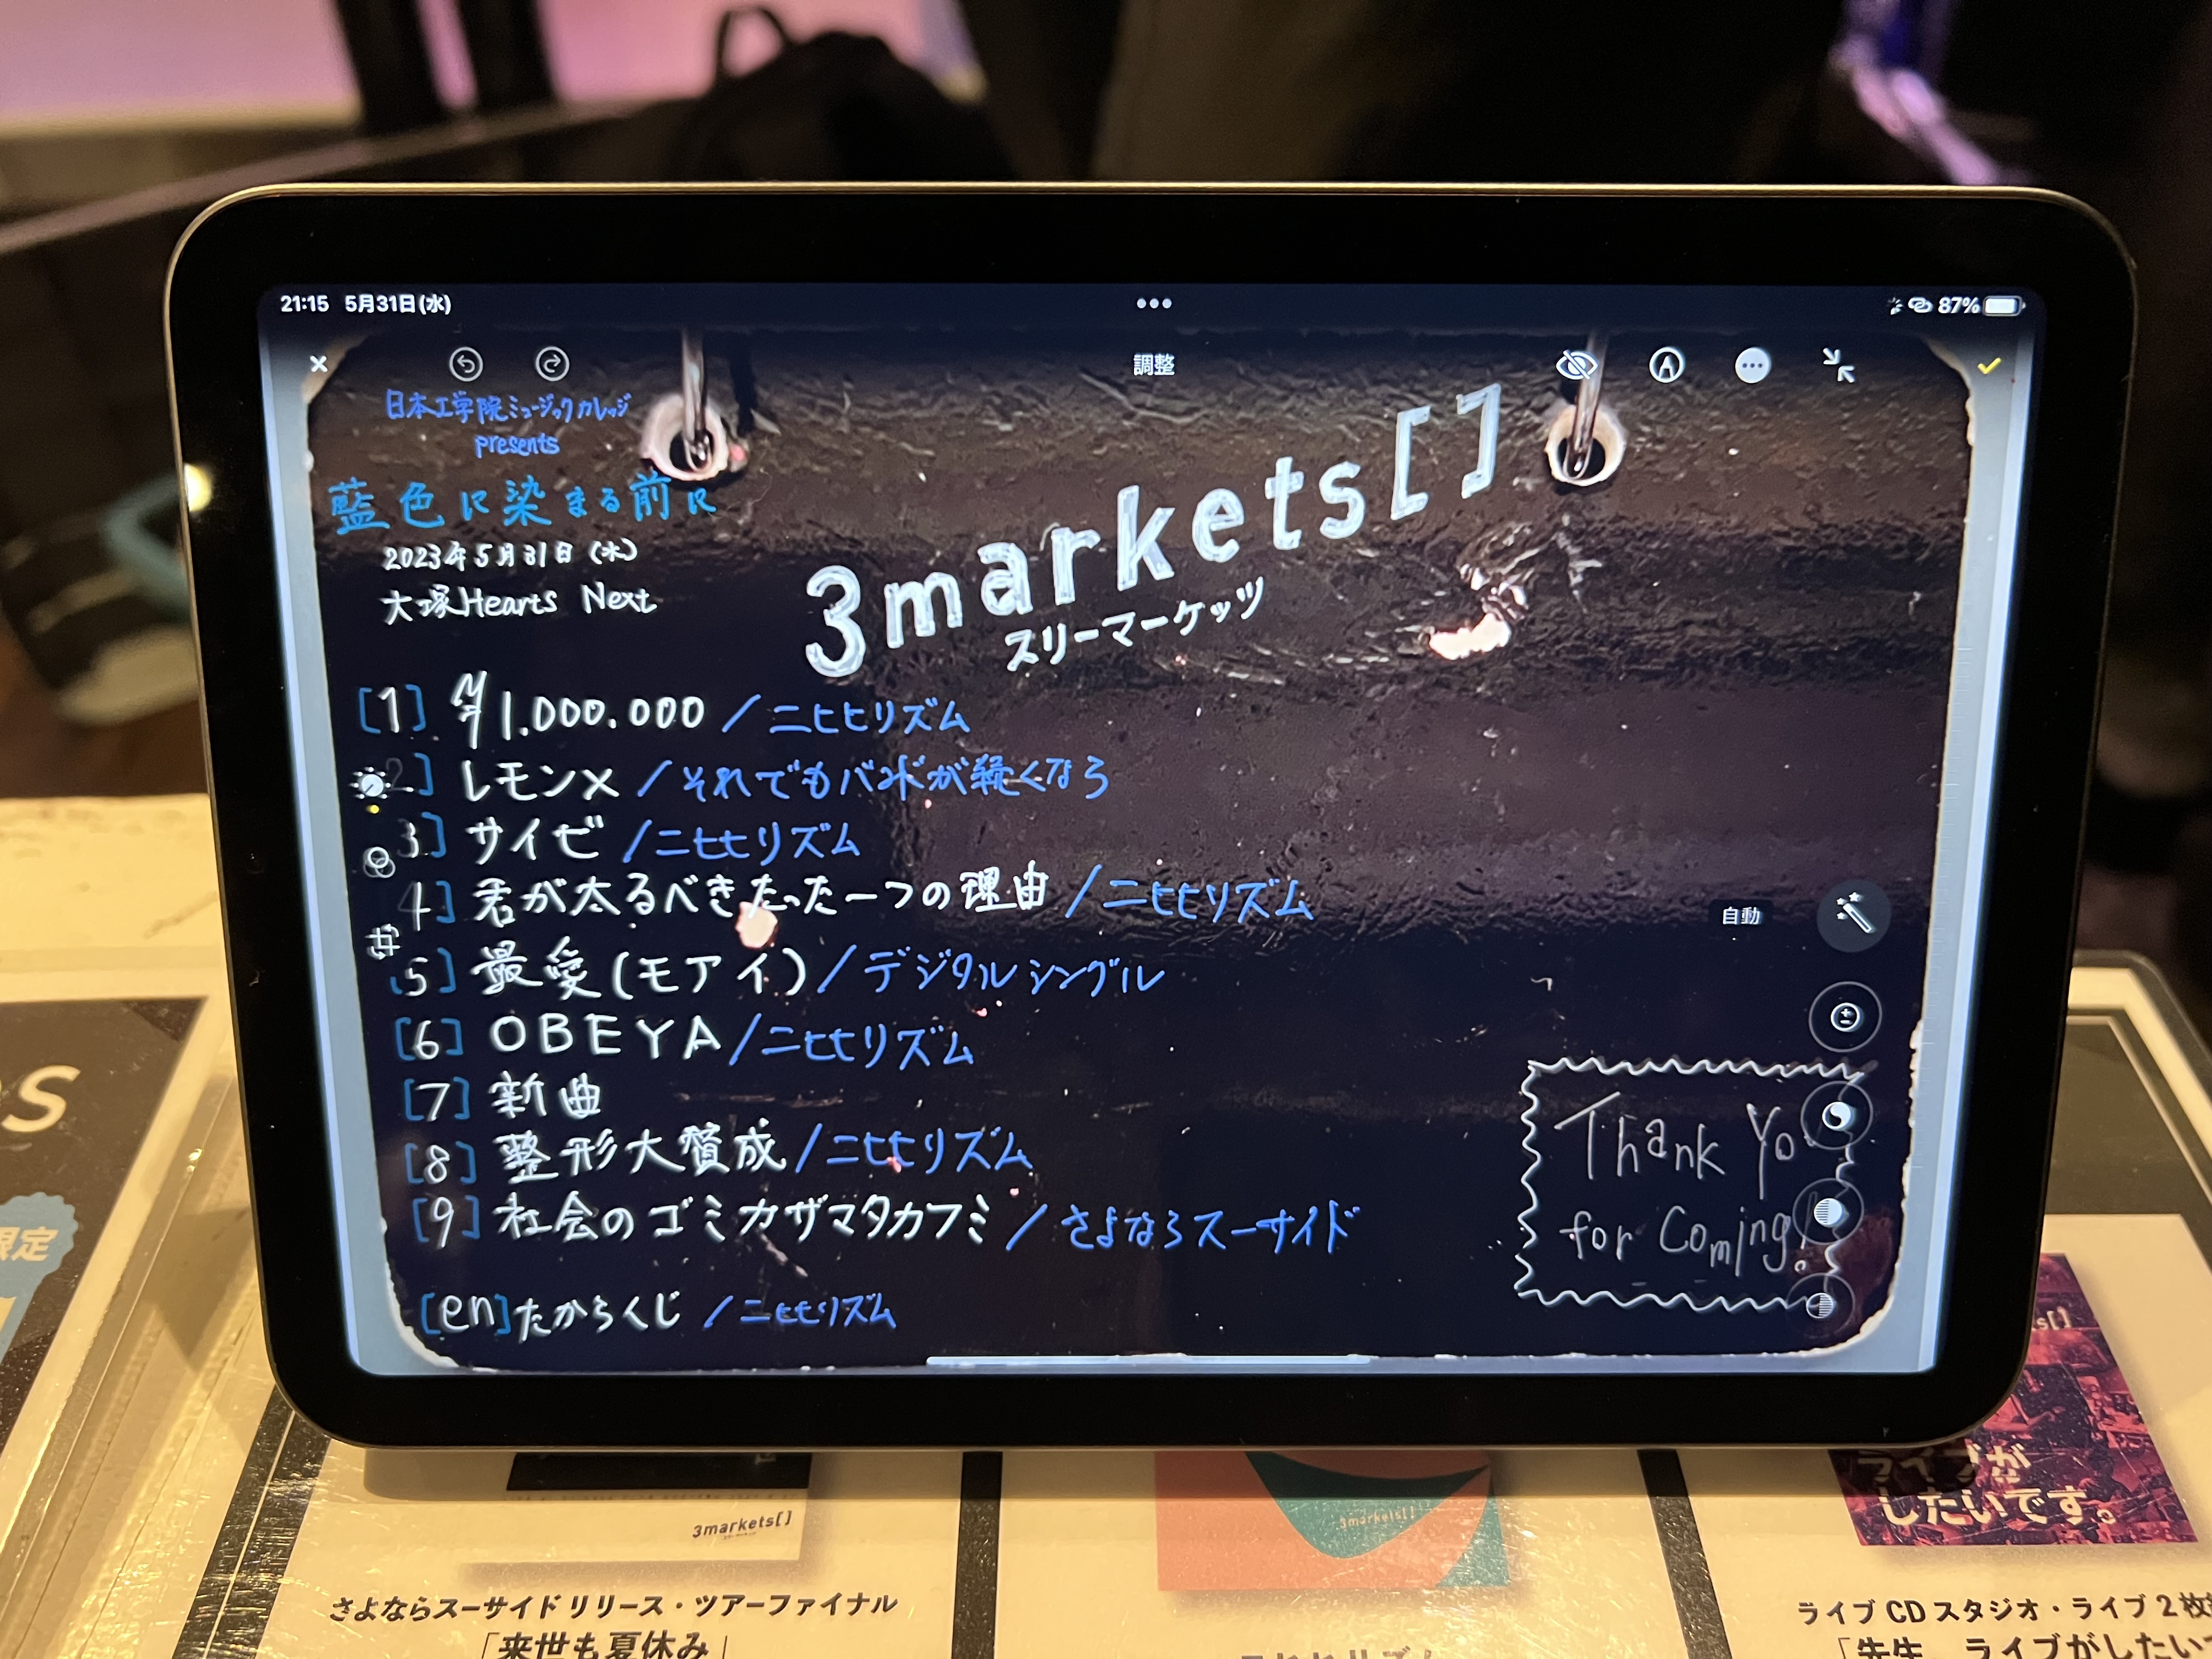 21:15 5月31日(水)
87%
調整
日本工学院ミュージックカレッジ
presents
藍色に染まる前に
2023年5月31日(水)
大塚Hearts Next
3markets[]
スリーマーケッツ
[1] ¥1.000.000 / ニヒヒリズム
2] レモン× / それでもバンドが続くなら
3] サイゼ / ニヒヒリズム
4] 君が太るべきたった一つの理由 / ニヒヒリズム
5] 最愛(モアイ) / デジタルシングル
[6] OBEYA / ニヒヒリズム
[7] 新曲
[8] 整形大賛成 / ニヒヒリズム
[9] 社会のゴミカザマタカフミ / さよならスーサイド
[en] たからくじ / ニヒヒリズム
自動
Thank Yo
for Coming!
限定
3markets[]
さよならスーサイド リリース・ツアーファイナル
「来世も夏休み」
3markets[]
s[]
ライブが
したいです。
ライブ CD スタジオ・ライブ 2 枚
「先生、ライブがしたい